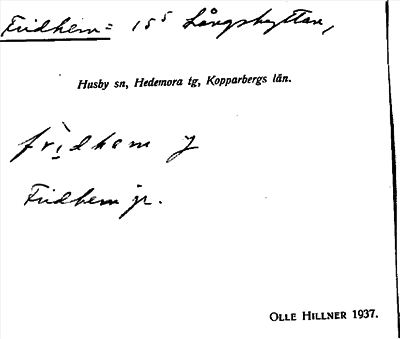 Fridhem = 15⁵ Långshyttan,
Husby sn, Hedemora tg, Kopparbergs län.
frìdhem y
Fridhem jr.
OLLE HILLNER 1937.